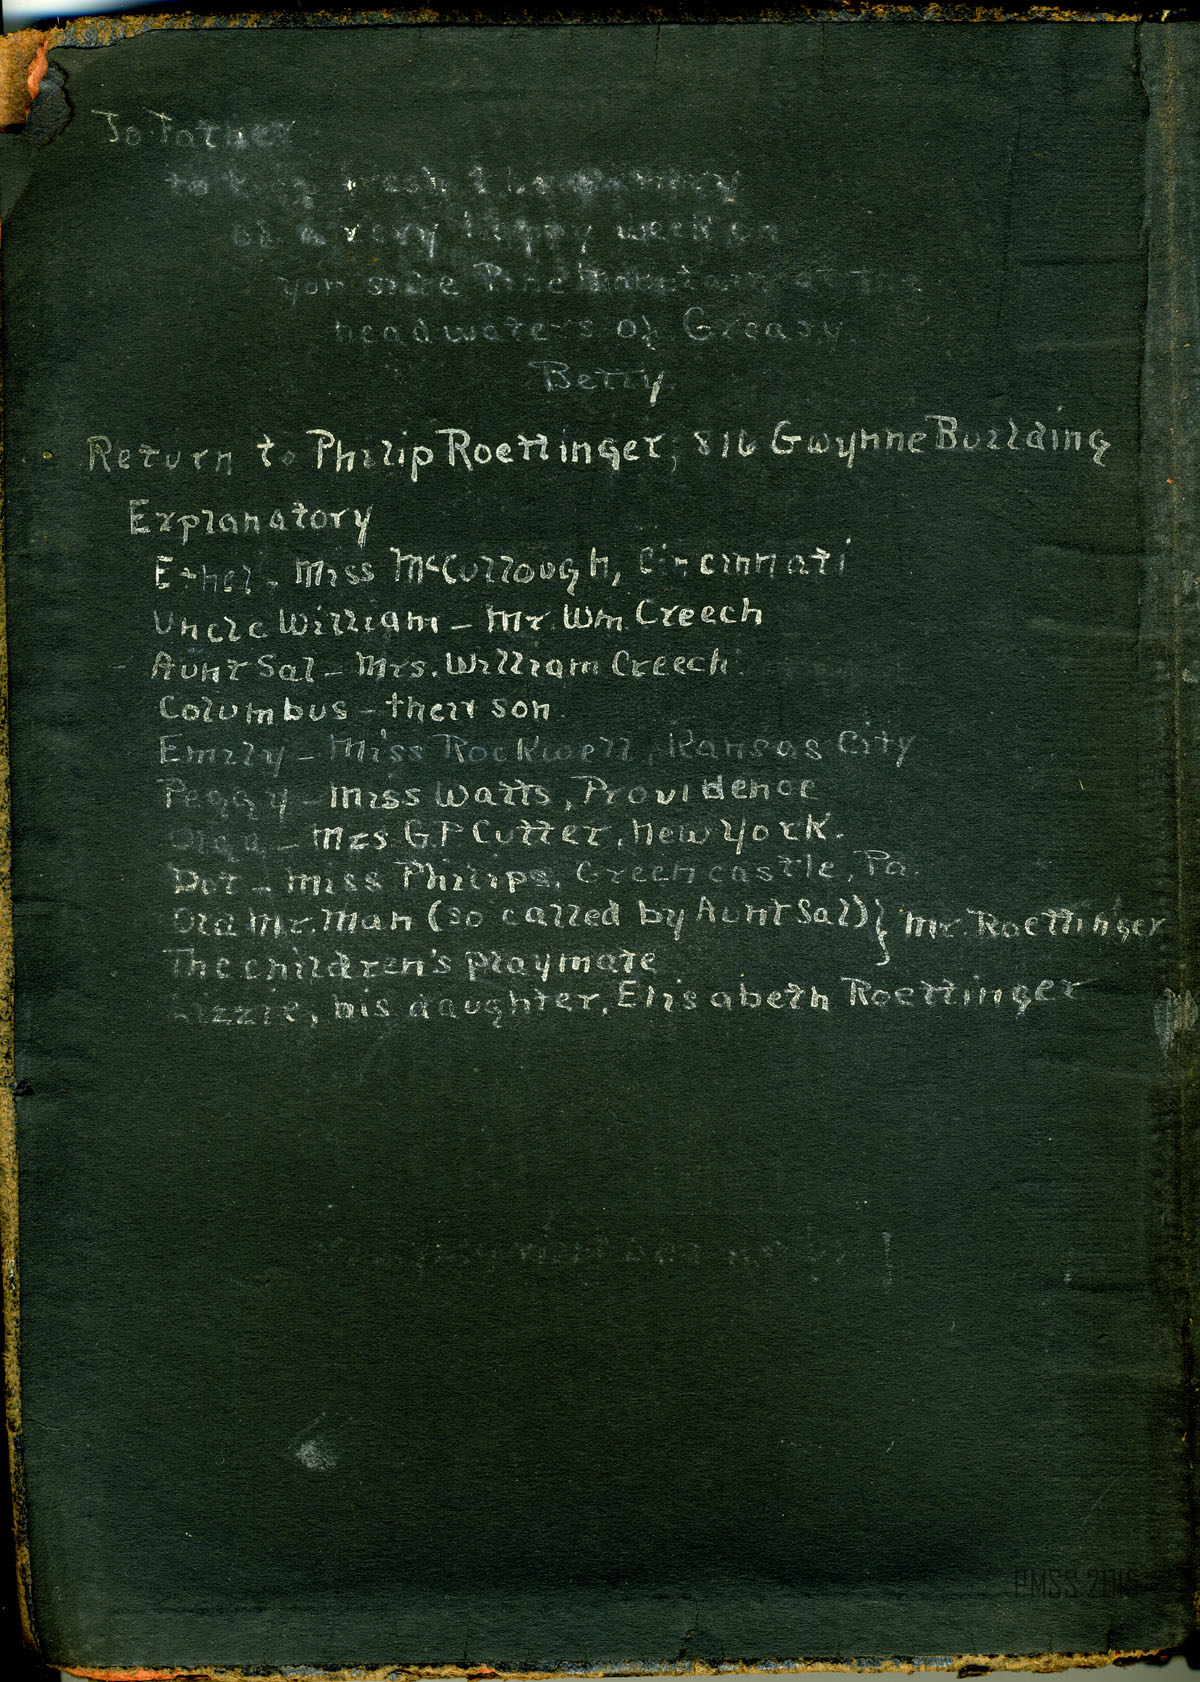 To Father
to keep fresh the memory
of a very happy week on
yon side Pine Mountain at the
headwaters of Greasy.
Betty.
Return to Philip Roettinger, 816 Gwynne Building
Explanatory
Ethel - Miss McCullough, Cincinnati
Uncle William - Mr. Wm Creech
Aunt Sal - Mrs. William Creech.
Columbus - their son.
Emily - Miss Rockwell, Kansas City
Peggy - Miss Watts, Providence
Olga - Mrs G.P Cutter, New York.
Dot - Miss Philips, Greencastle, Pa.
Old Mr. Man (so called by Aunt Sal) } Mr. Roettinger
The children's playmate
Lizzie, his daughter, Elisabeth Roettinger
PMSS 2016